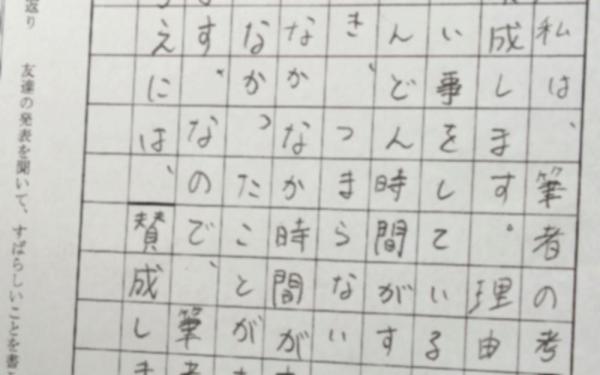 私は、筆者の考
成します。理由
い事をしている
んどん時間がす
き、つまらない
なかなか時間が
なかったことが
す、なので、筆
えには、賛成し
返り　友達の発表を聞いて、すばらしいことを書